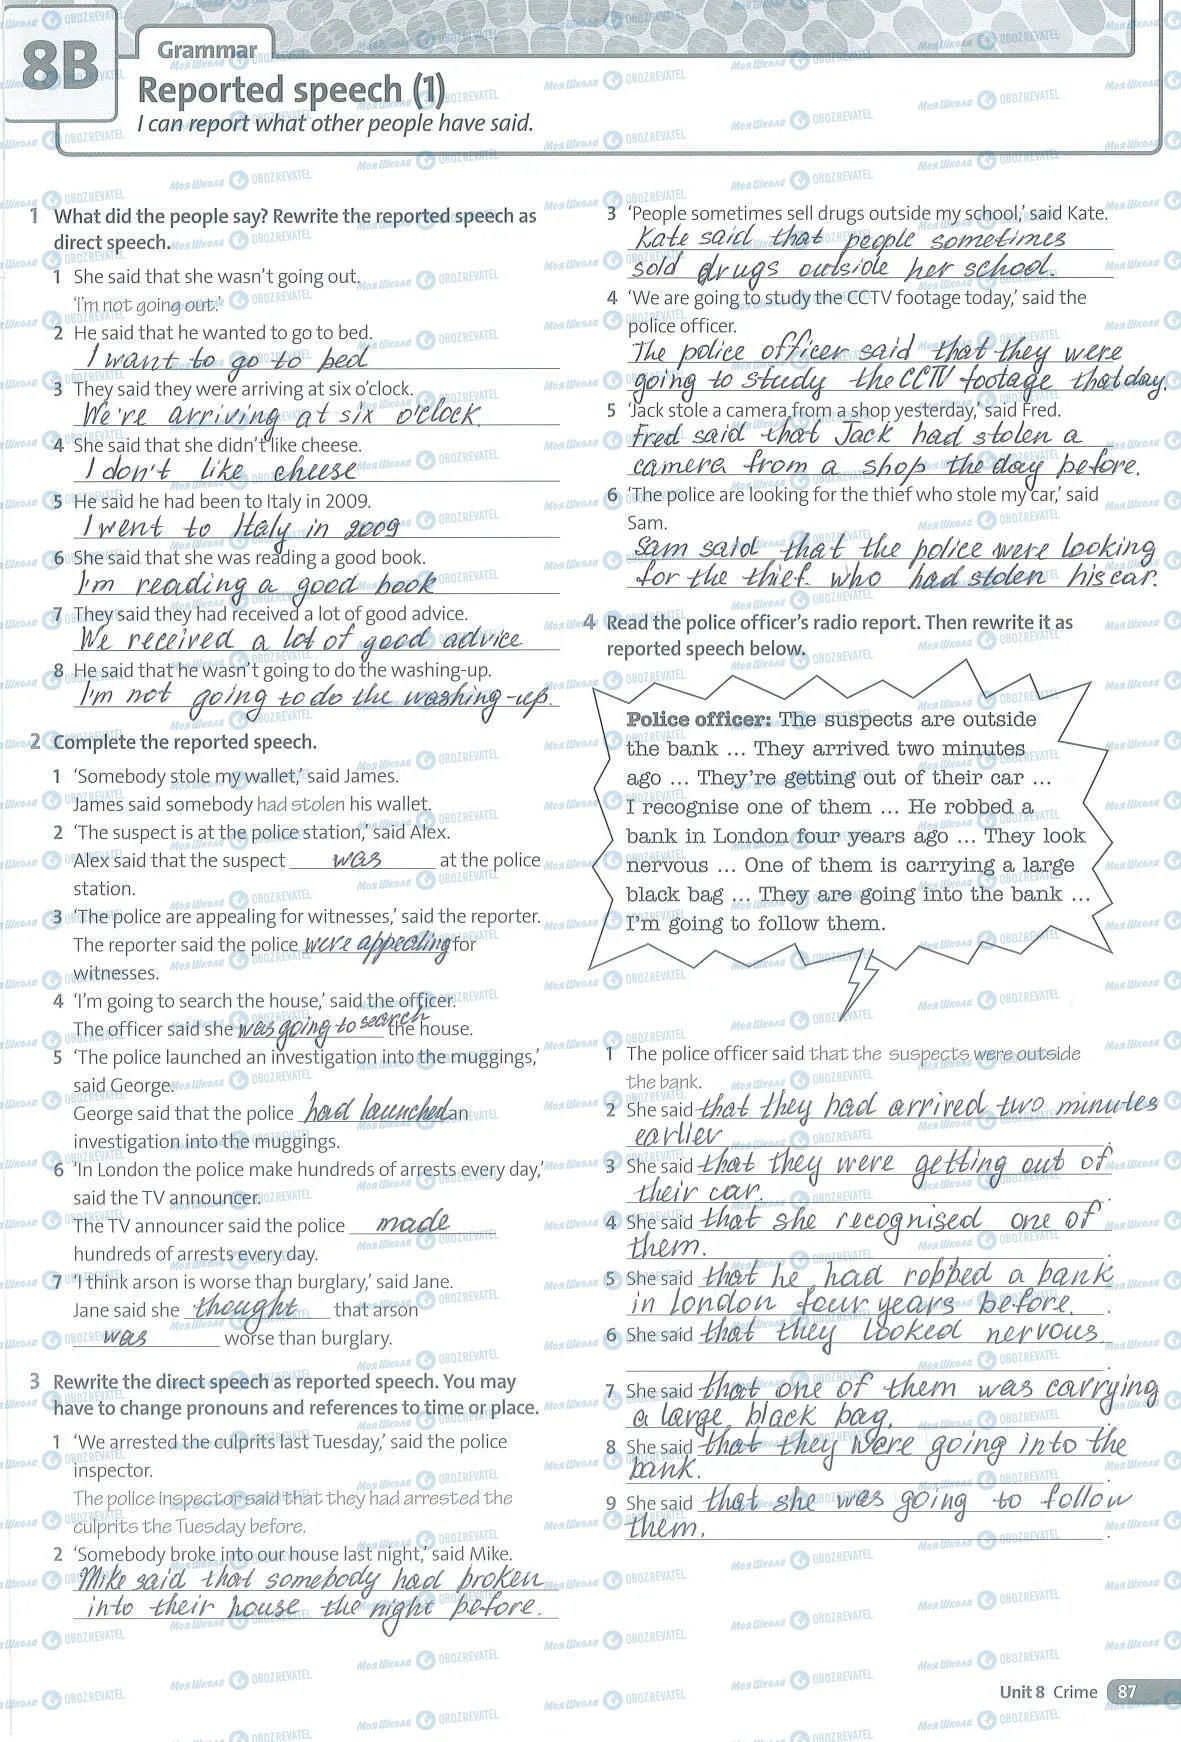 8B
Grammar
Reported speech (1)
I can report what other people have said.
1 What did the people say? Rewrite the reported speech as
direct speech.
1 She said that she wasn't going out.
'I'm not going out.'
2 He said that he wanted to go to bed.
I want to go to bed
3 They said they were arriving at six o'clock.
We're arriving at six o'clock.
4 She said that she didn't like cheese.
I don't like cheese
5 He said he had been to Italy in 2009.
I went to Italy in 2009
6 She said that she was reading a good book.
I'm reading a good book
7 They said they had received a lot of good advice.
We received a lot of good advice
8 He said that he wasn't going to do the washing-up.
I'm not going to do the washing-up.
2 Complete the reported speech.
1 'Somebody stole my wallet,' said James.
James said somebody had stolen his wallet.
2 'The suspect is at the police station,' said Alex.
Alex said that the suspect was at the police
station.
3 'The police are appealing for witnesses,' said the reporter.
The reporter said the police were appealing for
witnesses.
4 'I'm going to search the house,' said the officer.
The officer said she was going to search the house.
5 'The police launched an investigation into the muggings,'
said George.
George said that the police had launched an
investigation into the muggings.
6 'In London the police make hundreds of arrests every day,'
said the TV announcer.
The TV announcer said the police made
hundreds of arrests every day.
7 'I think arson is worse than burglary,' said Jane.
Jane said she thought that arson
was worse than burglary.
3 Rewrite the direct speech as reported speech. You may
have to change pronouns and references to time or place.
1 'We arrested the culprits last Tuesday,' said the police
inspector.
The police inspector said that they had arrested the
culprits the Tuesday before.
2 'Somebody broke into our house last night,' said Mike.
Mike said that somebody had broken
into their house the night before.
3 'People sometimes sell drugs outside my school,' said Kate.
Kate said that people sometimes
sold drugs outside her school.
4 'We are going to study the CCTV footage today,' said the
police officer.
The police officer said that they were
going to study the CCTV footage that day.
5 'Jack stole a camera from a shop yesterday,' said Fred.
Fred said that Jack had stolen a
camera from a shop the day before.
6 'The police are looking for the thief who stole my car,' said
Sam.
Sam said that the police were looking
for the thief who had stolen his car.
4 Read the police officer's radio report. Then rewrite it as
reported speech below.
Police officer: The suspects are outside
the bank ... They arrived two minutes
ago ... They're getting out of their car ...
I recognise one of them ... He robbed a
bank in London four years ago ... They look
nervous ... One of them is carrying a large
black bag ... They are going into the bank ...
I'm going to follow them.
1 The police officer said that the suspects were outside
the bank.
2 She said that they had arrived two minutes
earlier.
3 She said that they were getting out of
their car.
4 She said that she recognised one of
them.
5 She said that he had robbed a bank
in London four years before.
6 She said that they looked nervous
.
7 She said that one of them was carrying
a large black bag.
8 She said that they were going into the
bank.
9 She said that she was going to follow
them.
Unit 8 Crime 87
МояШкола OBOZREVATEL